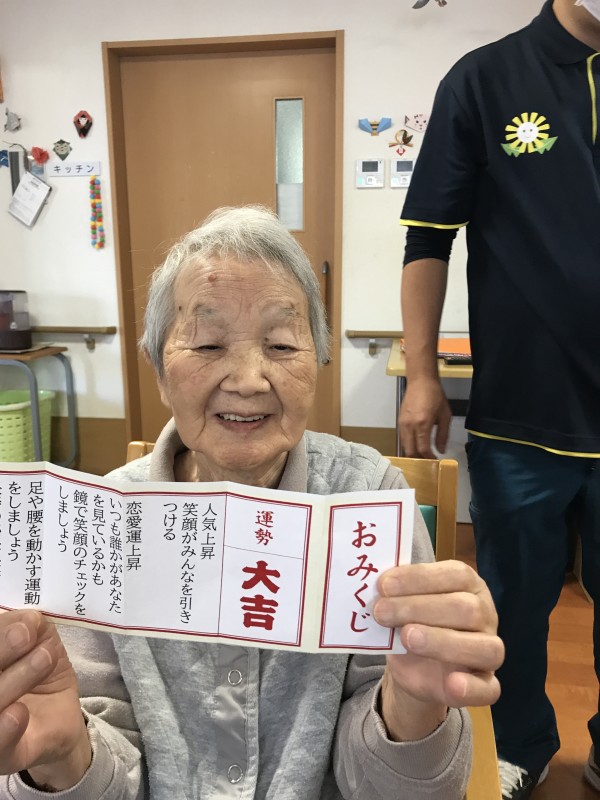 キッチン
おみくじ
運勢
大吉
人気上昇
笑顔がみんなを引き
つける
恋愛運上昇
いつも誰かがあなた
を見ているかも
鏡で笑顔のチェックを
しましょう
足や腰を動かす運動
をしましょう